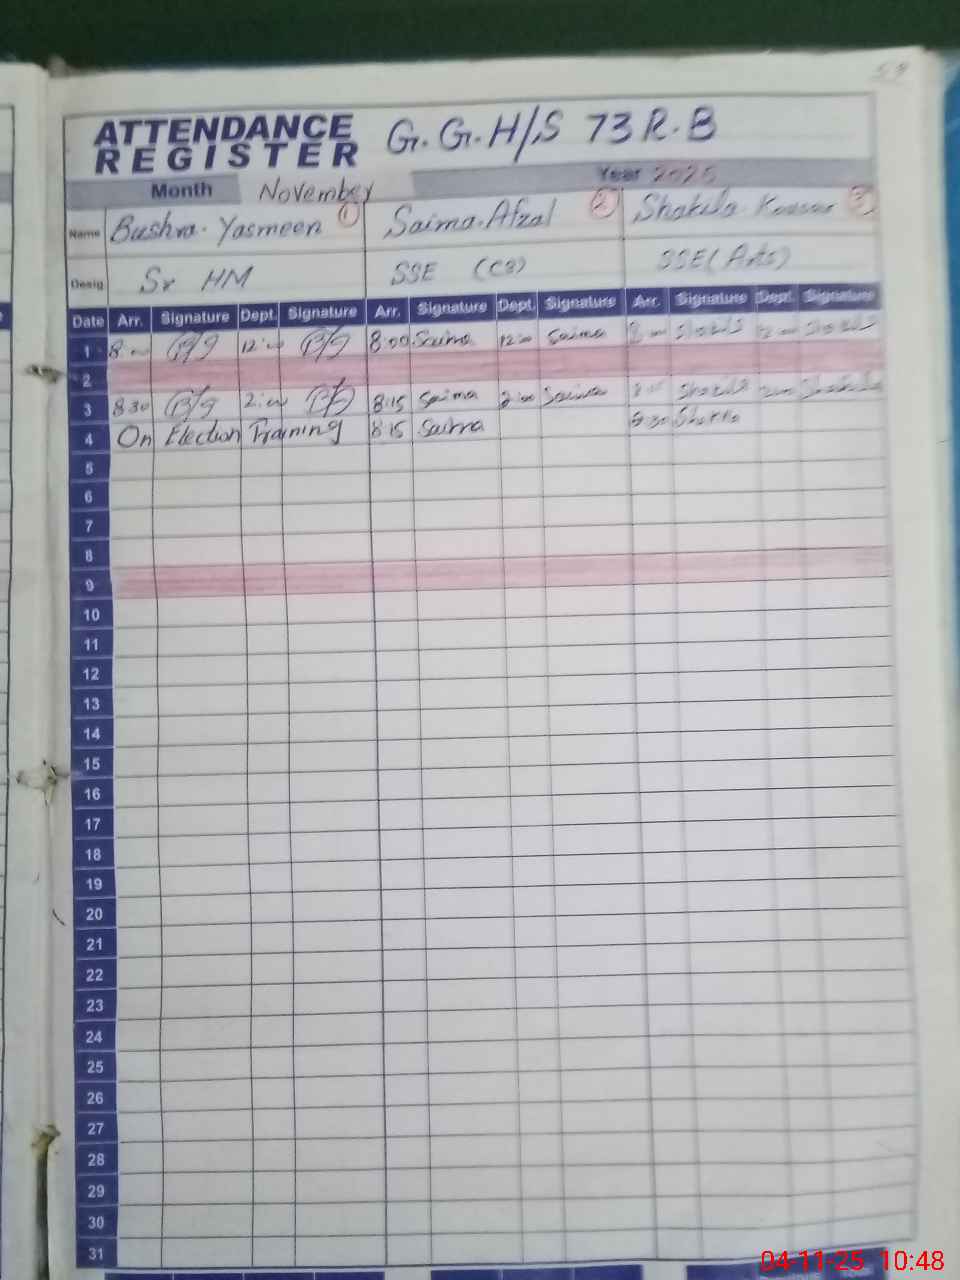 ATTENDANCE REGISTER G.G.H/S 73 R.B
Month November Year 2025
Name Bushra Yasmeen 1 Saima Afzal 2 Shakila Kousar 3
Desig Sr HM SSE (CS) SSE (Arts)
Date Arr. Signature Dept. Signature Arr. Signature Dept. Signature Arr. Signature Dept. Signature
1 8:00 12:00 8:00 Saima 12:00 Saima 8:00 Shakila 12:00 Shakila
2
3 8:30 2:00 8:15 Saima 2:00 Saima Shakila 2:00 Shakila
4 On Election Training 8:15 Saima 8:30 Shakila
5
6
7
8
9
10
11
12
13
14
15
16
17
18
19
20
21
22
23
24
25
26
27
28
29
30
31
04-11-25 10:48